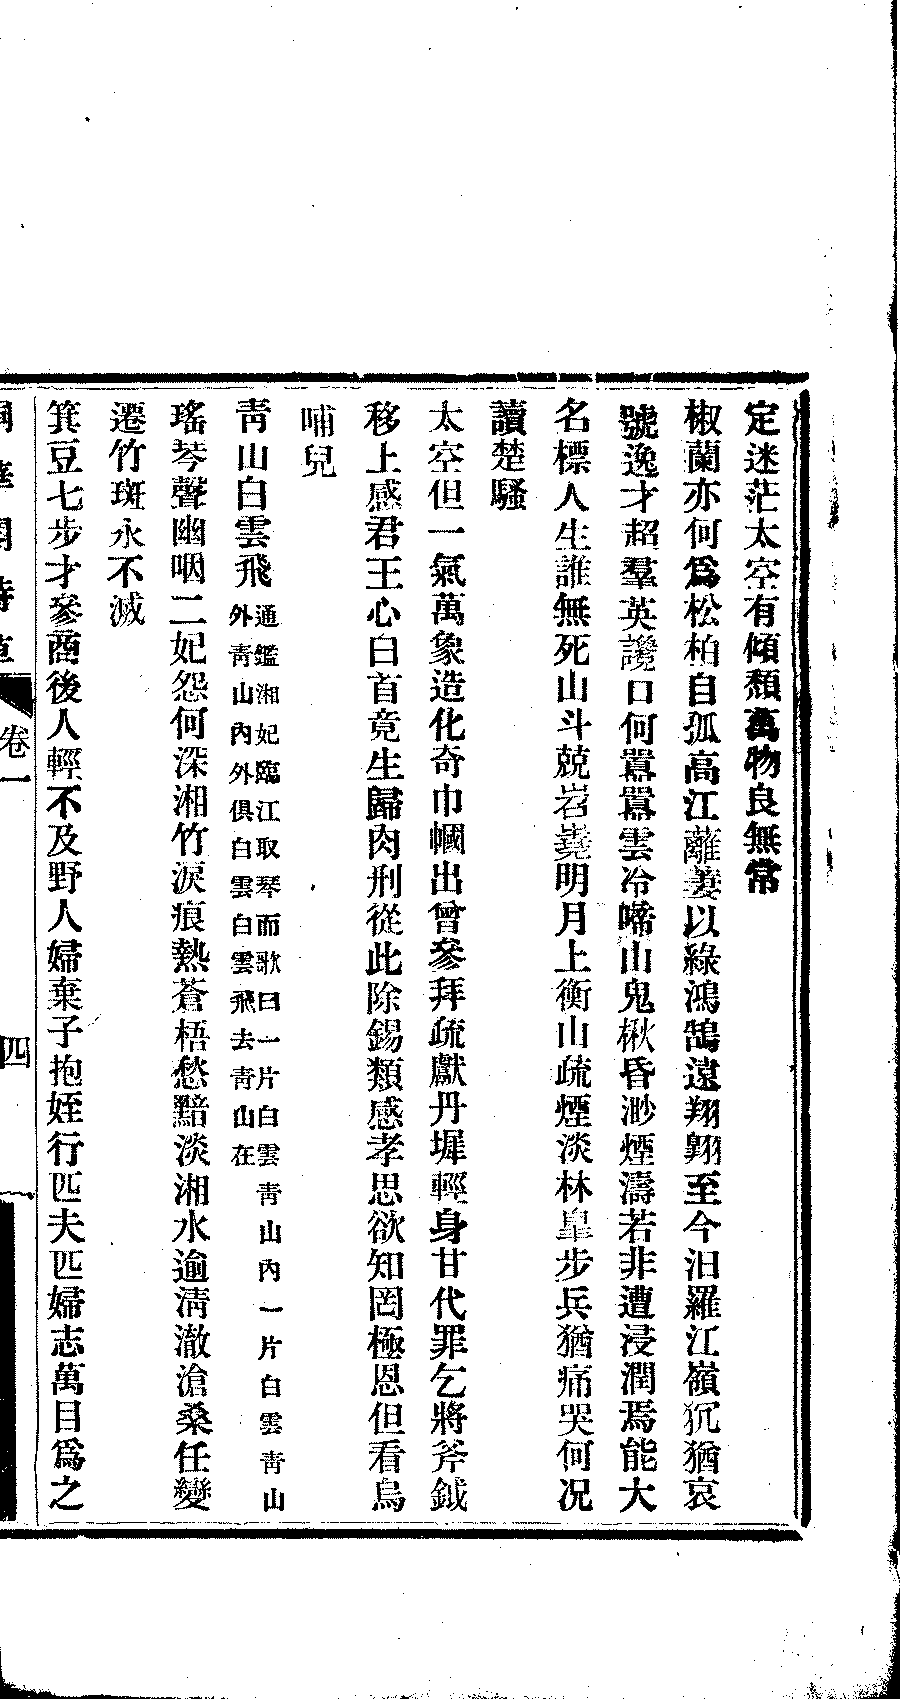 定迷茫太空有傾頹萬物良無常
椒蘭亦何爲松柏自孤高江蘺萋以綠鴻鵠遠翔翺至今汨羅江嶺狖猶哀
號逸才超羣英讒口何囂囂雲冷啼山鬼楸昏渺煙濤若非遭浸潤焉能大
名標人生誰無死山斗兢岧嶤明月上衡山疏煙淡林臯步兵猶痛哭何况
讀楚騷
太空但一氣萬象造化奇巾幗出曾參拜疏獻丹墀輕身甘代罪乞將斧鉞
移上感君王心白首竟生歸肉刑從此除錫類感孝思欲知罔極恩但看烏
哺兒
靑山白雲飛通鑑湘妃臨江取琴而歌曰一片白雲靑山內一片白雲靑山
外靑山內外俱白雲白雲飛去靑山在
瑤琴聲幽咽二妃怨何深湘竹淚痕熱蒼梧愁黯淡湘水逾淸澈滄桑任變
遷竹斑永不滅
箕豆七步才參商後人輕不及野人婦棄子抱姪行匹夫匹婦志萬目爲之
卷一
四